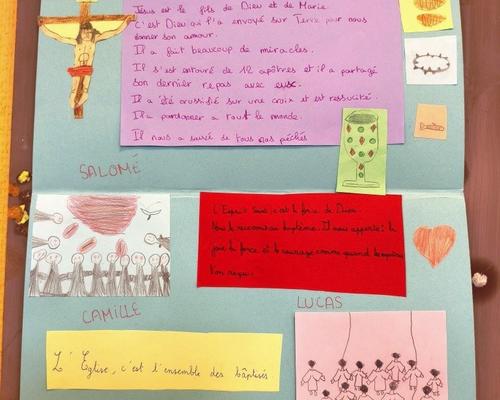 Jésus est le fils de Dieu et de Marie.
C'est Dieu qui l'a envoyé sur Terre pour nous
donner son amour.
Il a fait beaucoup de miracles.
Il s'est entouré de 12 apôtres et il a partagé
son dernier repas avec eux.
Il a été crussifié sur une croix et est ressucité.
Il a pardonner a tout le monde.
Il nous a sauvé de tous nos péchés
SALOMÉ
L'Esprit Saint, c'est la force de Dieu.
Nous le recevons au baptême. Il nous apporte la
joie la force et le courage comme quand les apôtres
l'on reçu.
CAMILLE
LUCAS
L'Eglise, c'est l'ensemble des baptisés